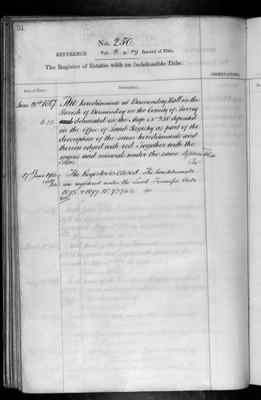 51
No. 250
REFERENCE Vol. 3 p. 79 Record of Title.
The Register of Estates with an Indefeasible Title.
Date of Entry. Description. OBSERVATIONS.
June 1867. The hereditaments at Bermondsey Wall in the
Parish of Bermondsey in the County of Surrey
delineated on the Map No. 250 deposited
in the Office of Land Registry as part of the
description of the same hereditaments and
therein edged with red Together with the
mines and minerals under the same.
17th June 1904 The Register is closed. The hereditaments
are registered under the Land Transfer Acts
1875 & 1897